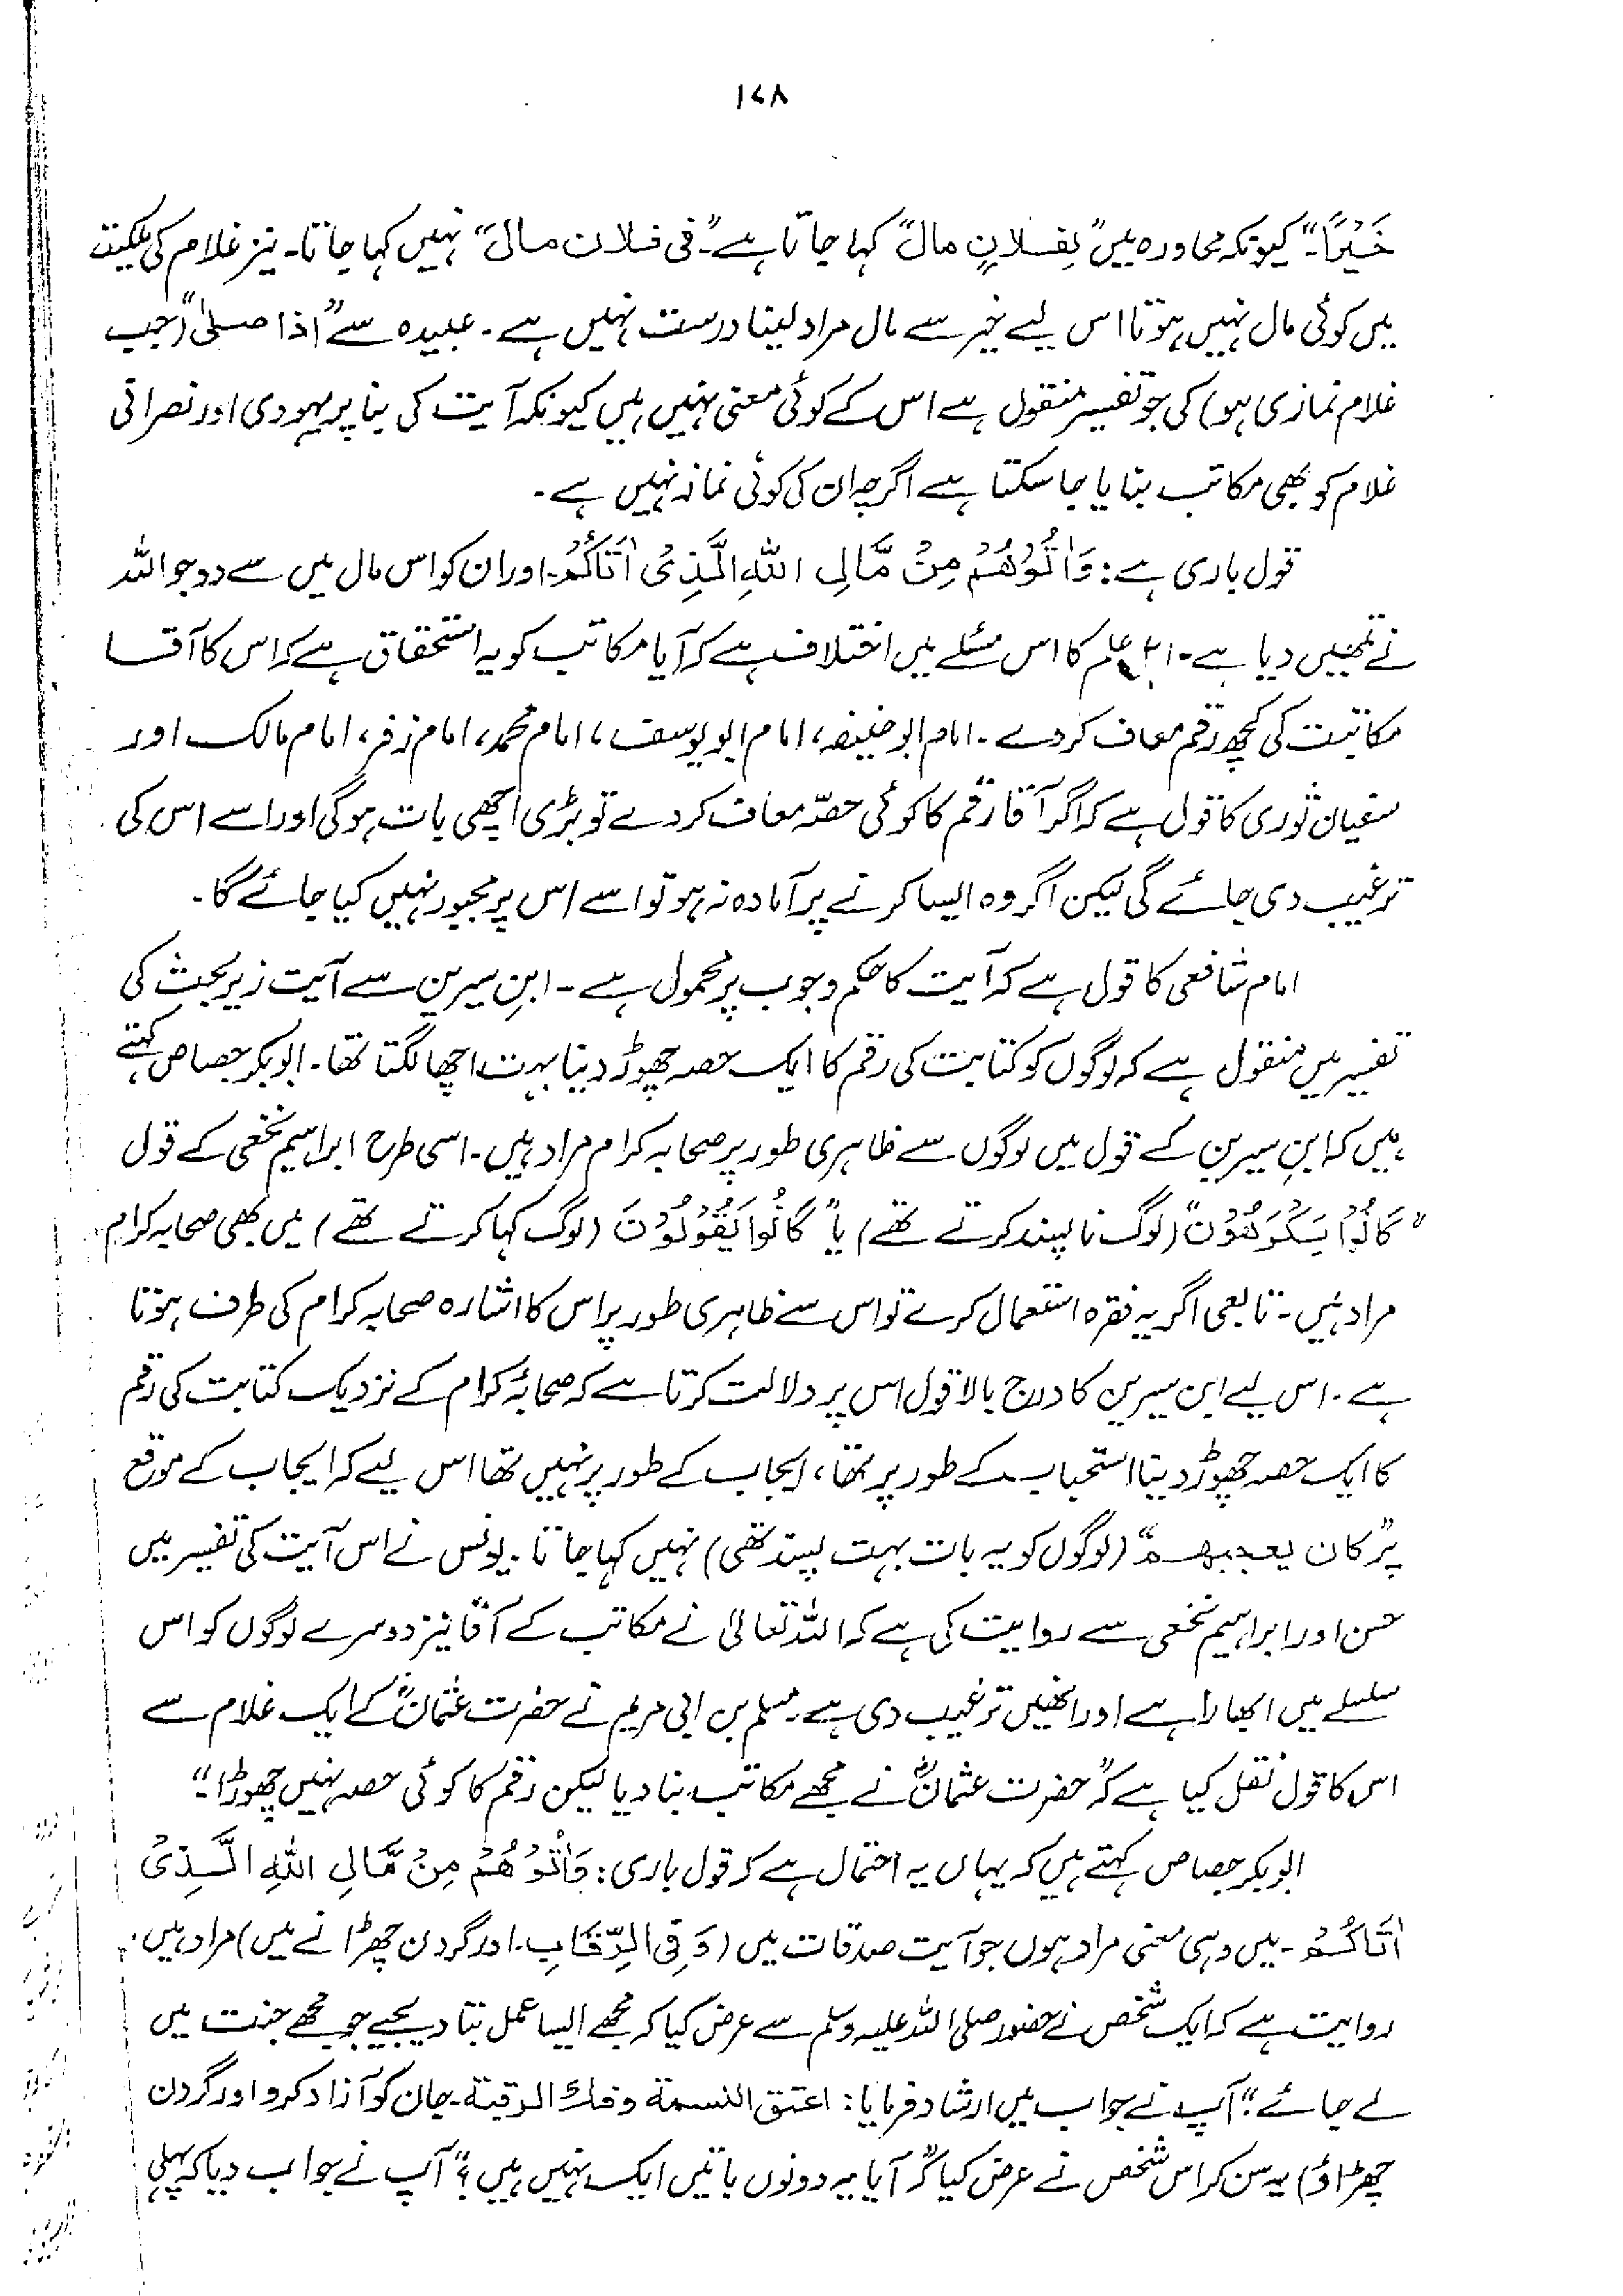 ۱۷۸
خَيْرًا"۔ کیونکہ محاورہ میں "بفلانٍ مال" کہا جاتا ہے "فی فلان مال" نہیں کہا جاتا۔ نیز غلام کی ملکیت
میں کوئی مال نہیں ہوتا اس لیے خیر سے مال مراد لینا درست نہیں ہے۔ عبیدہ سے "اذا صلیٰ" (جب
غلام نمازی ہو) کی جو تفسیر منقول ہے اس کے کوئی معنی نہیں ہیں کیونکہ آیت کی بنا پر یہودی اور نصرانی
غلام کو بھی مکاتب بنایا جا سکتا ہے اگرچہ ان کی کوئی نماز نہیں ہے۔
قول باری ہے: وَاٰتُوْهُمْ مِنْ مَّالِ اللهِ الَّذِیْ اٰتَاكُمْ۔ اور ان کو اس مال میں سے دو جو اللہ
نے تمہیں دیا ہے۔ اہل علم کا اس مسئلے میں اختلاف ہے کہ آیا مکاتب کو یہ استحقاق ہے کہ اس کا آقا
مکاتبت کی کچھ رقم معاف کر دے۔ امام ابو حنیفہ، امام ابو یوسف، امام محمد، امام زفر، امام مالک اور
سفیان ثوری کا قول ہے کہ اگر آقا رقم کا کوئی حصّہ معاف کر دے تو بڑی اچھی بات ہوگی اور اسے اس کی
ترغیب دی جائے گی لیکن اگر وہ ایسا کرنے پر آمادہ نہ ہو تو اسے اس پر مجبور نہیں کیا جائے گا۔
امام شافعی کا قول ہے کہ آیت کا حکم وجوب پر محمول ہے۔ ابنِ سیرین سے آیت زیر بحث کی
تفسیر میں منقول ہے کہ لوگوں کو کتابت کی رقم کا ایک حصہ چھوڑ دینا بہت اچھا لگتا تھا۔ ابو بکر جصاص کہتے
ہیں کہ ابنِ سیرین کے قول میں لوگوں سے ظاہری طور پر صحابہ کرام مراد ہیں۔ اسی طرح ابراہیم نخعی کے قول
"كَانُوْا يَكْرَهُوْنَ" (لوگ ناپسند کرتے تھے) یا "كَانُوا يَقُوْلُوْنَ (لوگ کہا کرتے تھے) میں بھی صحابہ کرام
مراد ہیں۔ تابعی اگر یہ فقرہ استعمال کرے تو اس سے ظاہری طور پر اس کا اشارہ صحابہ کرام کی طرف ہوتا
ہے۔ اس لیے ابن سیرین کا درج بالا قول اس پر دلالت کرتا ہے کہ صحابۂ کرام کے نزدیک کتابت کی رقم
کا ایک حصہ چھوڑ دینا استحباب کے طور پر تھا، ایجاب کے طور پر نہیں تھا اس لیے کہ ایجاب کے موقع
پر "کان یعجبھم" (لوگوں کو یہ بات بہت پسند تھی) نہیں کہا جاتا۔ یونس نے اس آیت کی تفسیر میں
حسن اور ابراہیم نخعی سے روایت کی ہے کہ اللہ تعالیٰ نے مکاتب کے آقا نیز دوسرے لوگوں کو اس
سلسلے میں ابھارا ہے اور انھیں ترغیب دی ہے۔ مسلم بن ابی مریم نے حضرت عثمانؓ کے ایک غلام سے
اس کا قول نقل کیا ہے کہ "حضرت عثمانؓ نے مجھے مکاتب بنا دیا لیکن رقم کا کوئی حصہ نہیں چھوڑا"۔
ابو بکر جصاص کہتے ہیں کہ یہاں یہ احتمال ہے کہ قول باری: وَاٰتُوْهُمْ مِنْ مَّالِ اللهِ الَّذِیْ
اٰتَاكُمْ۔ میں وہی معنی مراد ہوں جو آیت صدقات میں (وَفِی الرِّقَابِ۔ اور گردن چھڑانے میں) مراد ہیں۔
روایت ہے کہ ایک شخص نے حضور صلی اللہ علیہ وسلم سے عرض کیا کہ مجھے ایسا عمل بتا دیجیے جو مجھے جنت میں
لے جائے"۔ آپ نے جواب میں ارشاد فرمایا: اعتق النسمة وفك الرقبة۔ جان کو آزاد کرو اور گردن
چھڑاؤ) یہ سن کر اس شخص نے عرض کیا "کہ آیا یہ دونوں باتیں ایک نہیں ہیں؟" آپ نے جواب دیا کہ پہلی